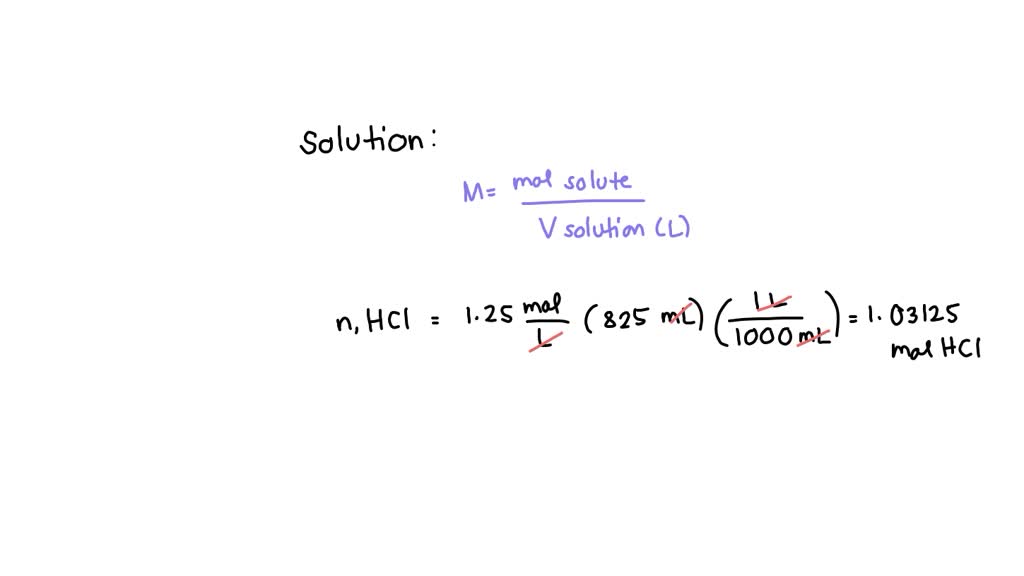 Solution:
M = mol solute / V solution (L)
n, HCl = 1.25 mol/L (825 mL) (1 L / 1000 mL) = 1.03125
mol HCl